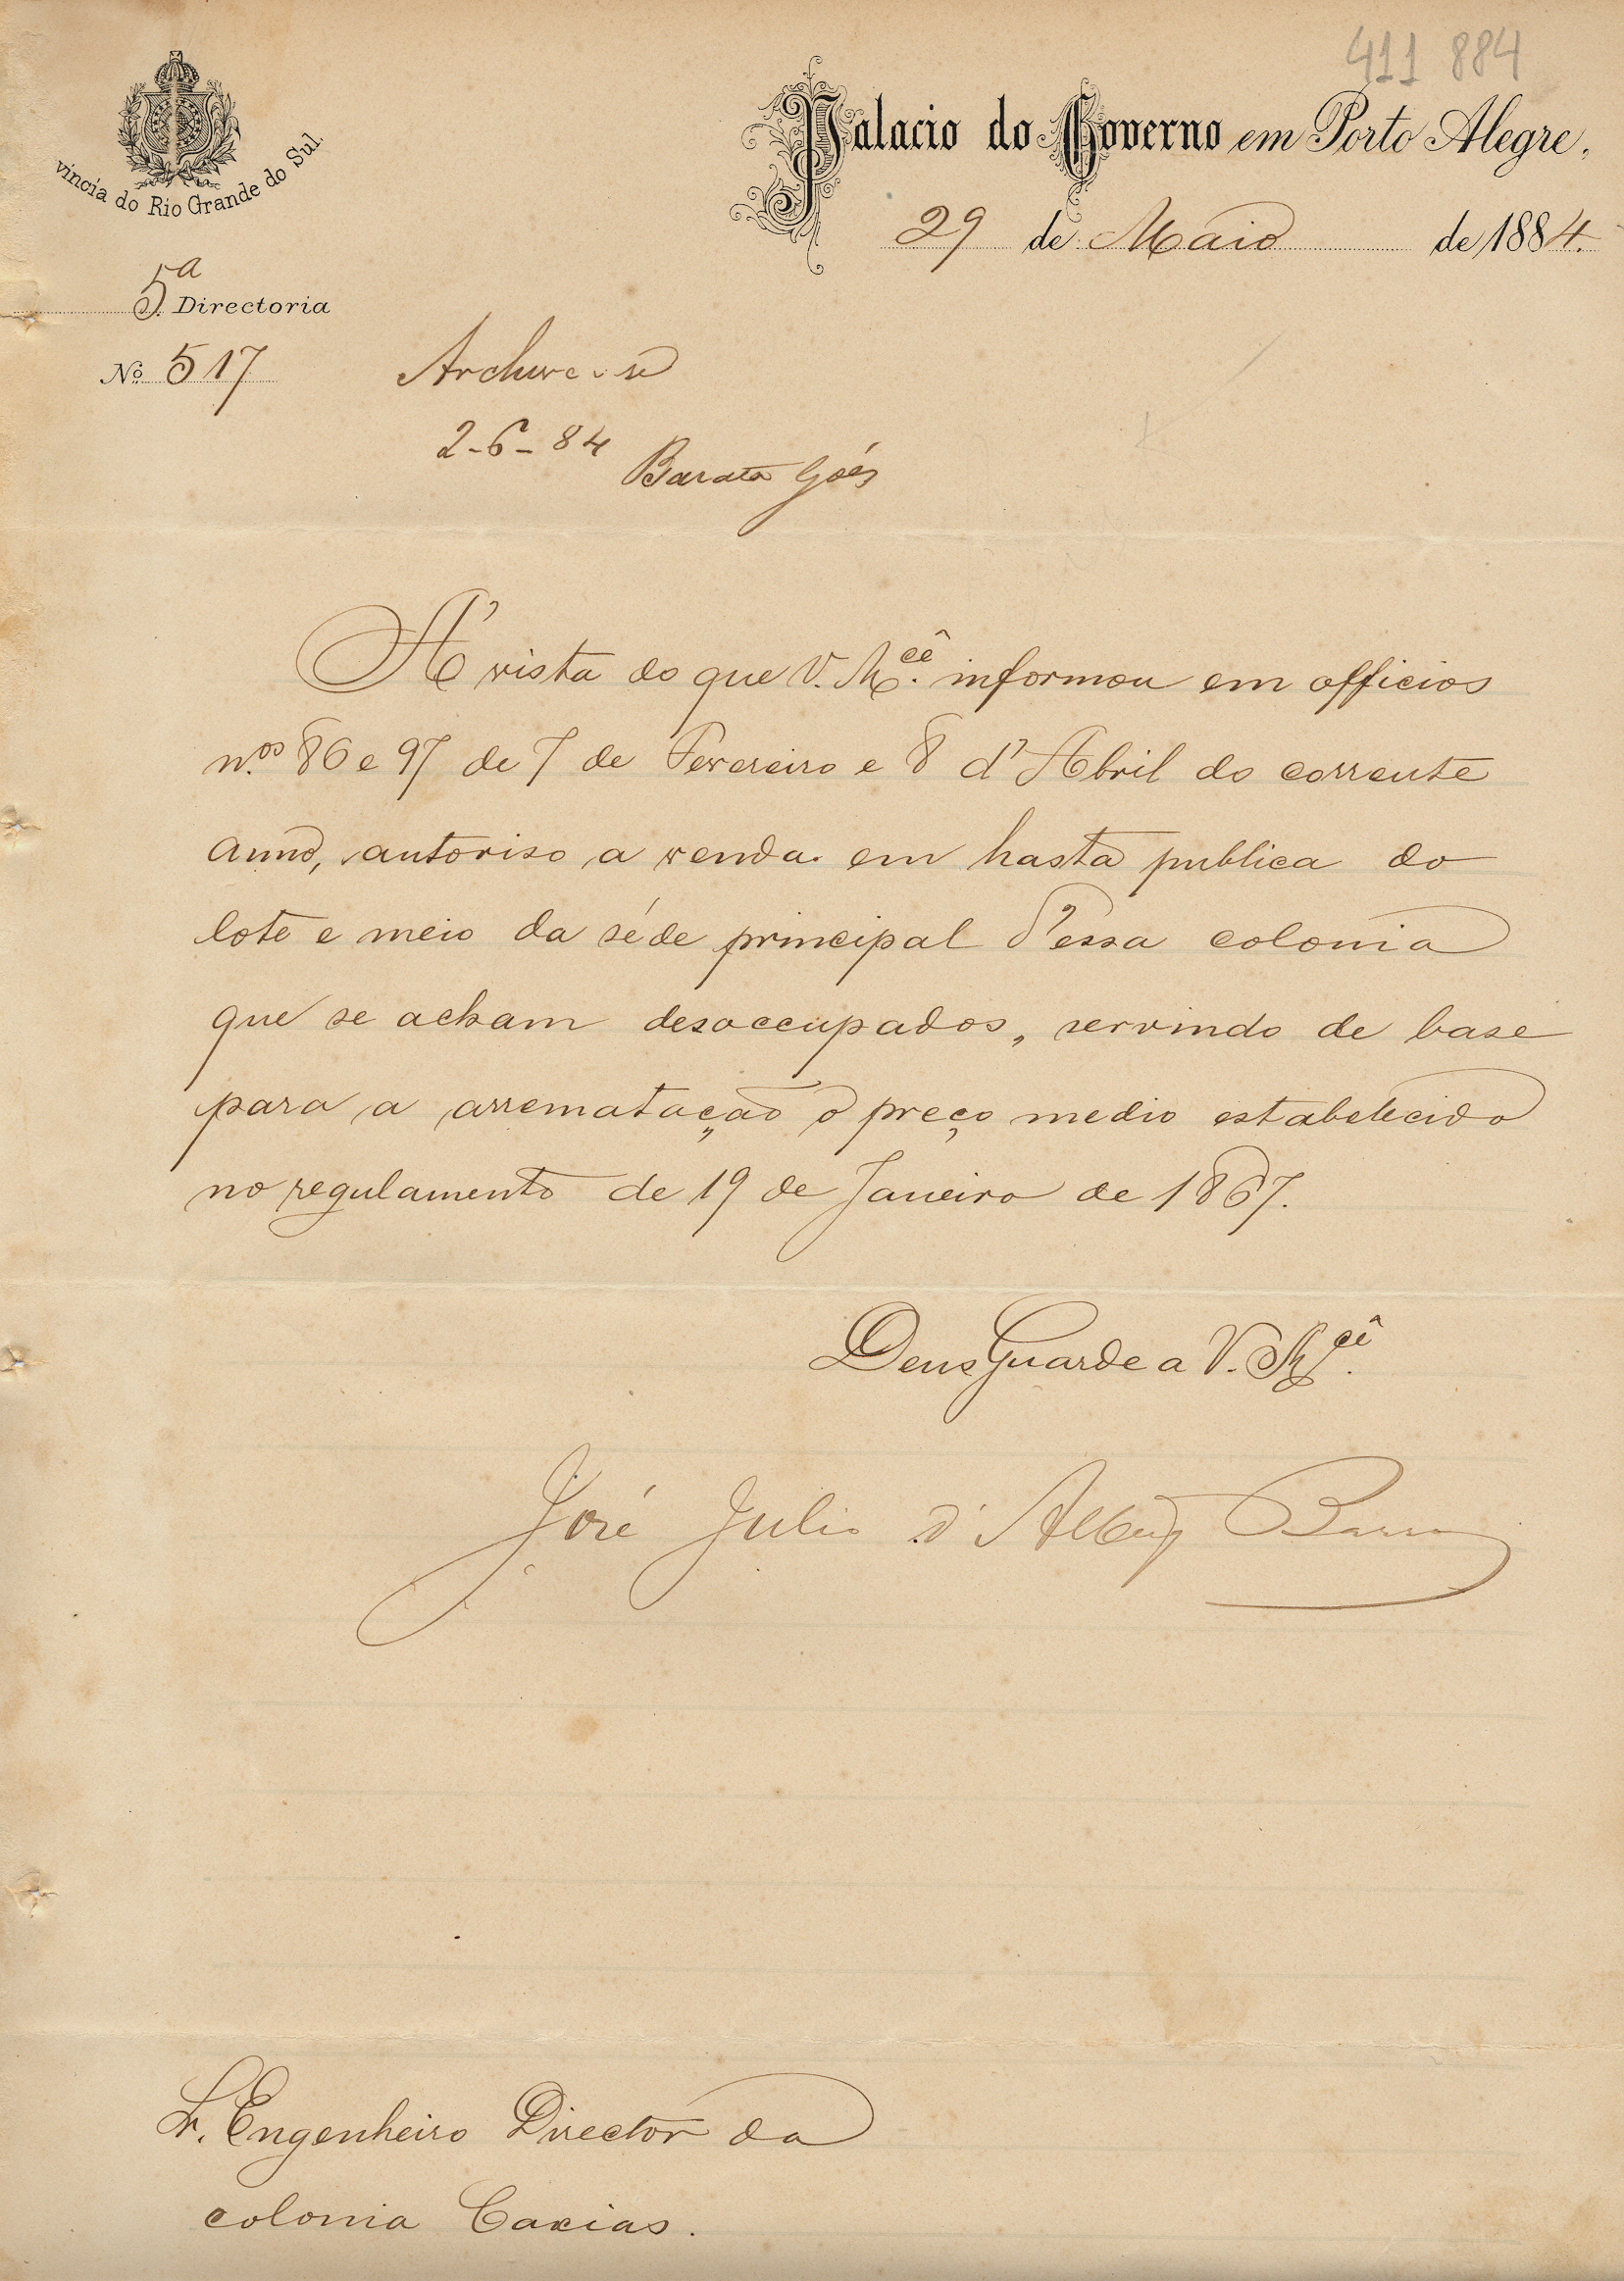 411 884
vincia do Rio Grande do Sul.
Palacio do Governo em Porto Alegre,
29 de Maio de 1884.
5ª Directoria
Nº 517
Archive-se
2-6-84
Barata Góes
A' vista do que V. M.cê informou em officios
n.os 86 e 97 de 7 de Fevereiro e 8 d'Abril do corrente
anno, autoriso a venda em hasta publica do
lote e meio da séde principal d'essa colonia
que se acham desoccupados, servindo de base
para a arrematação o preço medio estabelecido
no regulamento de 19 de Janeiro de 1867.
Deus Guarde a V. M.cê
José Julio d'Albuq Barros
Sr. Engenheiro Director da
colonia Caxias.